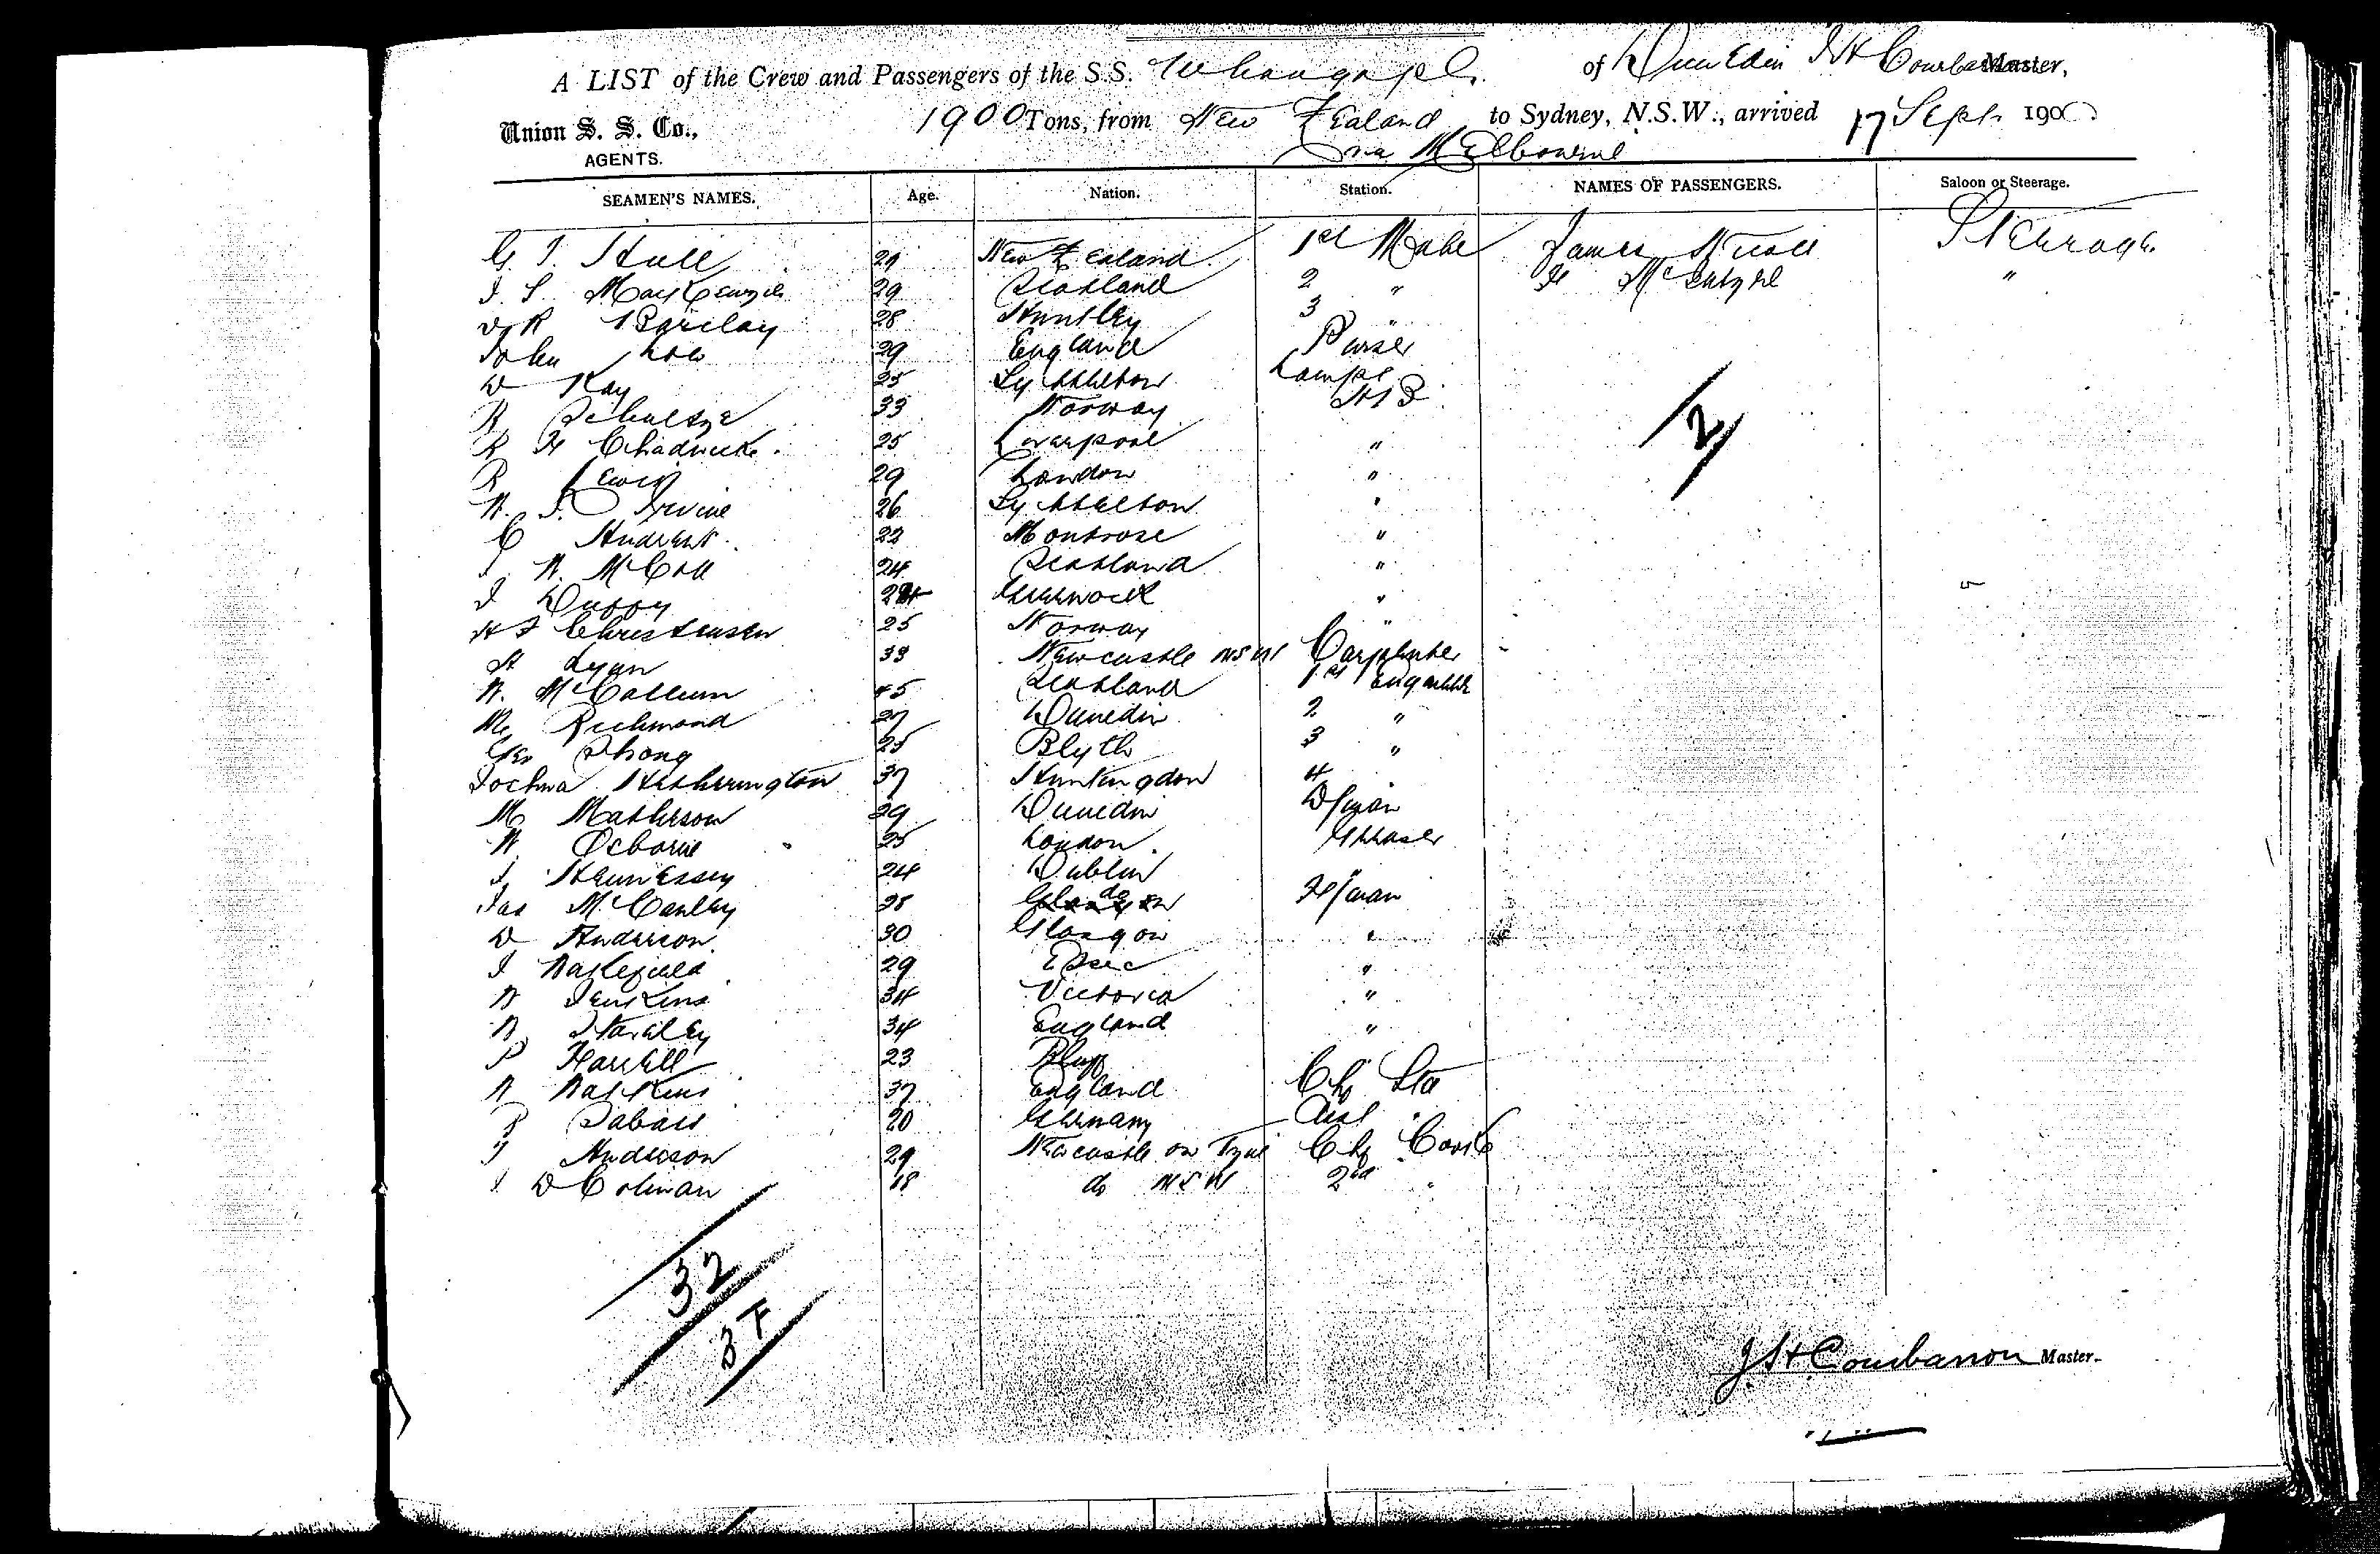 A LIST of the Crew and Passengers of the S.S. Whangape of Dunedin Master,
1900 Tons, from New Zealand to Sydney, N.S.W., arrived 17 Sept. 1900
Union S. S. Co.,
AGENTS.
via Melbourne
SEAMEN'S NAMES. Age. Nation. Station. NAMES OF PASSENGERS. Saloon or Steerage.
G. T. Hull 29 New Zealand 1st Mate James Steerage
J. S. MacKenzie 29 Scotland 2 " "
Barclay 28 Huntley 3 "
John Low 29 England Purser
D Kay 25 Lyttleton Lamps
R Schultze 33 Norway AB
R H Chadwick. 25 Liverpool "
R Lewis 29 London "
W. J. Irvine 26 Lyttelton "
C 22 Montrose "
J. W. McColl 24 Scotland "
J Duffy Greenock "
H J Christensen 25 Norway "
Lyon 33 Newcastle NSW Carpenter
W. McCallum 45 Scotland 1st Engineer
M Richmond 27 Dunedin 2 "
Geo Strong 25 Blyth 3 "
Joshua Hetherington 37 Huntingdon 4
M Matheson 29 Dunedin D/man
W Osborne 25 London. Greaser
J Hennessey 24 Dublin
Jas McCauley 28 do F/man
D Anderson. 30 Glasgow "
J Wakefield 29 Essex "
W Jenkins 34 Victoria "
W Staveley 34 England "
P Farrell 23 Bluff
W Watkins 37 England Chf Std
P 20 Germany Asst
J Anderson 29 Newcastle on Tyne Chf Cook
J D Colman 18 do NSW 2nd "
2
32
34
J. H. Combanon Master.